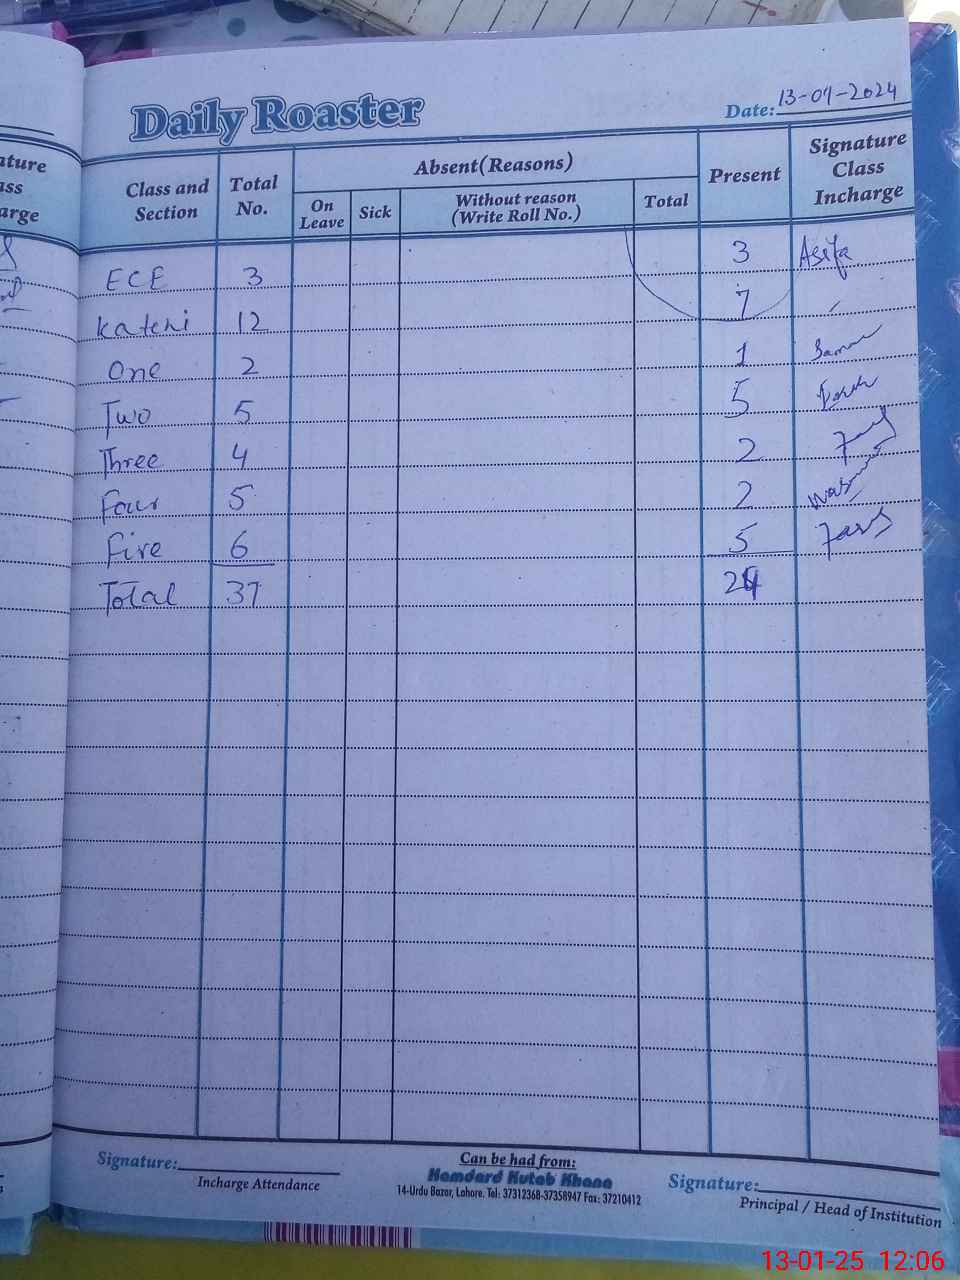 Daily Roaster
Date: 13-01-2024
ature
ass
arge
Class and Section
Total No.
Absent(Reasons)
On Leave
Sick
Without reason (Write Roll No.)
Total
Present
Signature Class Incharge
ECE 3 3 Asifa
Katchi 12 7
One 2 1
Two 5 5
Three 4 2
Four 5 2
Five 6 5
Total 37 24
Signature:
Incharge Attendance
Can be had from:
Hamdard Kutab Khana
14-Urdu Bazar, Lahore. Tel: 37312368-37358947 Fax: 37210412
Signature:
Principal / Head of Institution
13-01-25 12:06